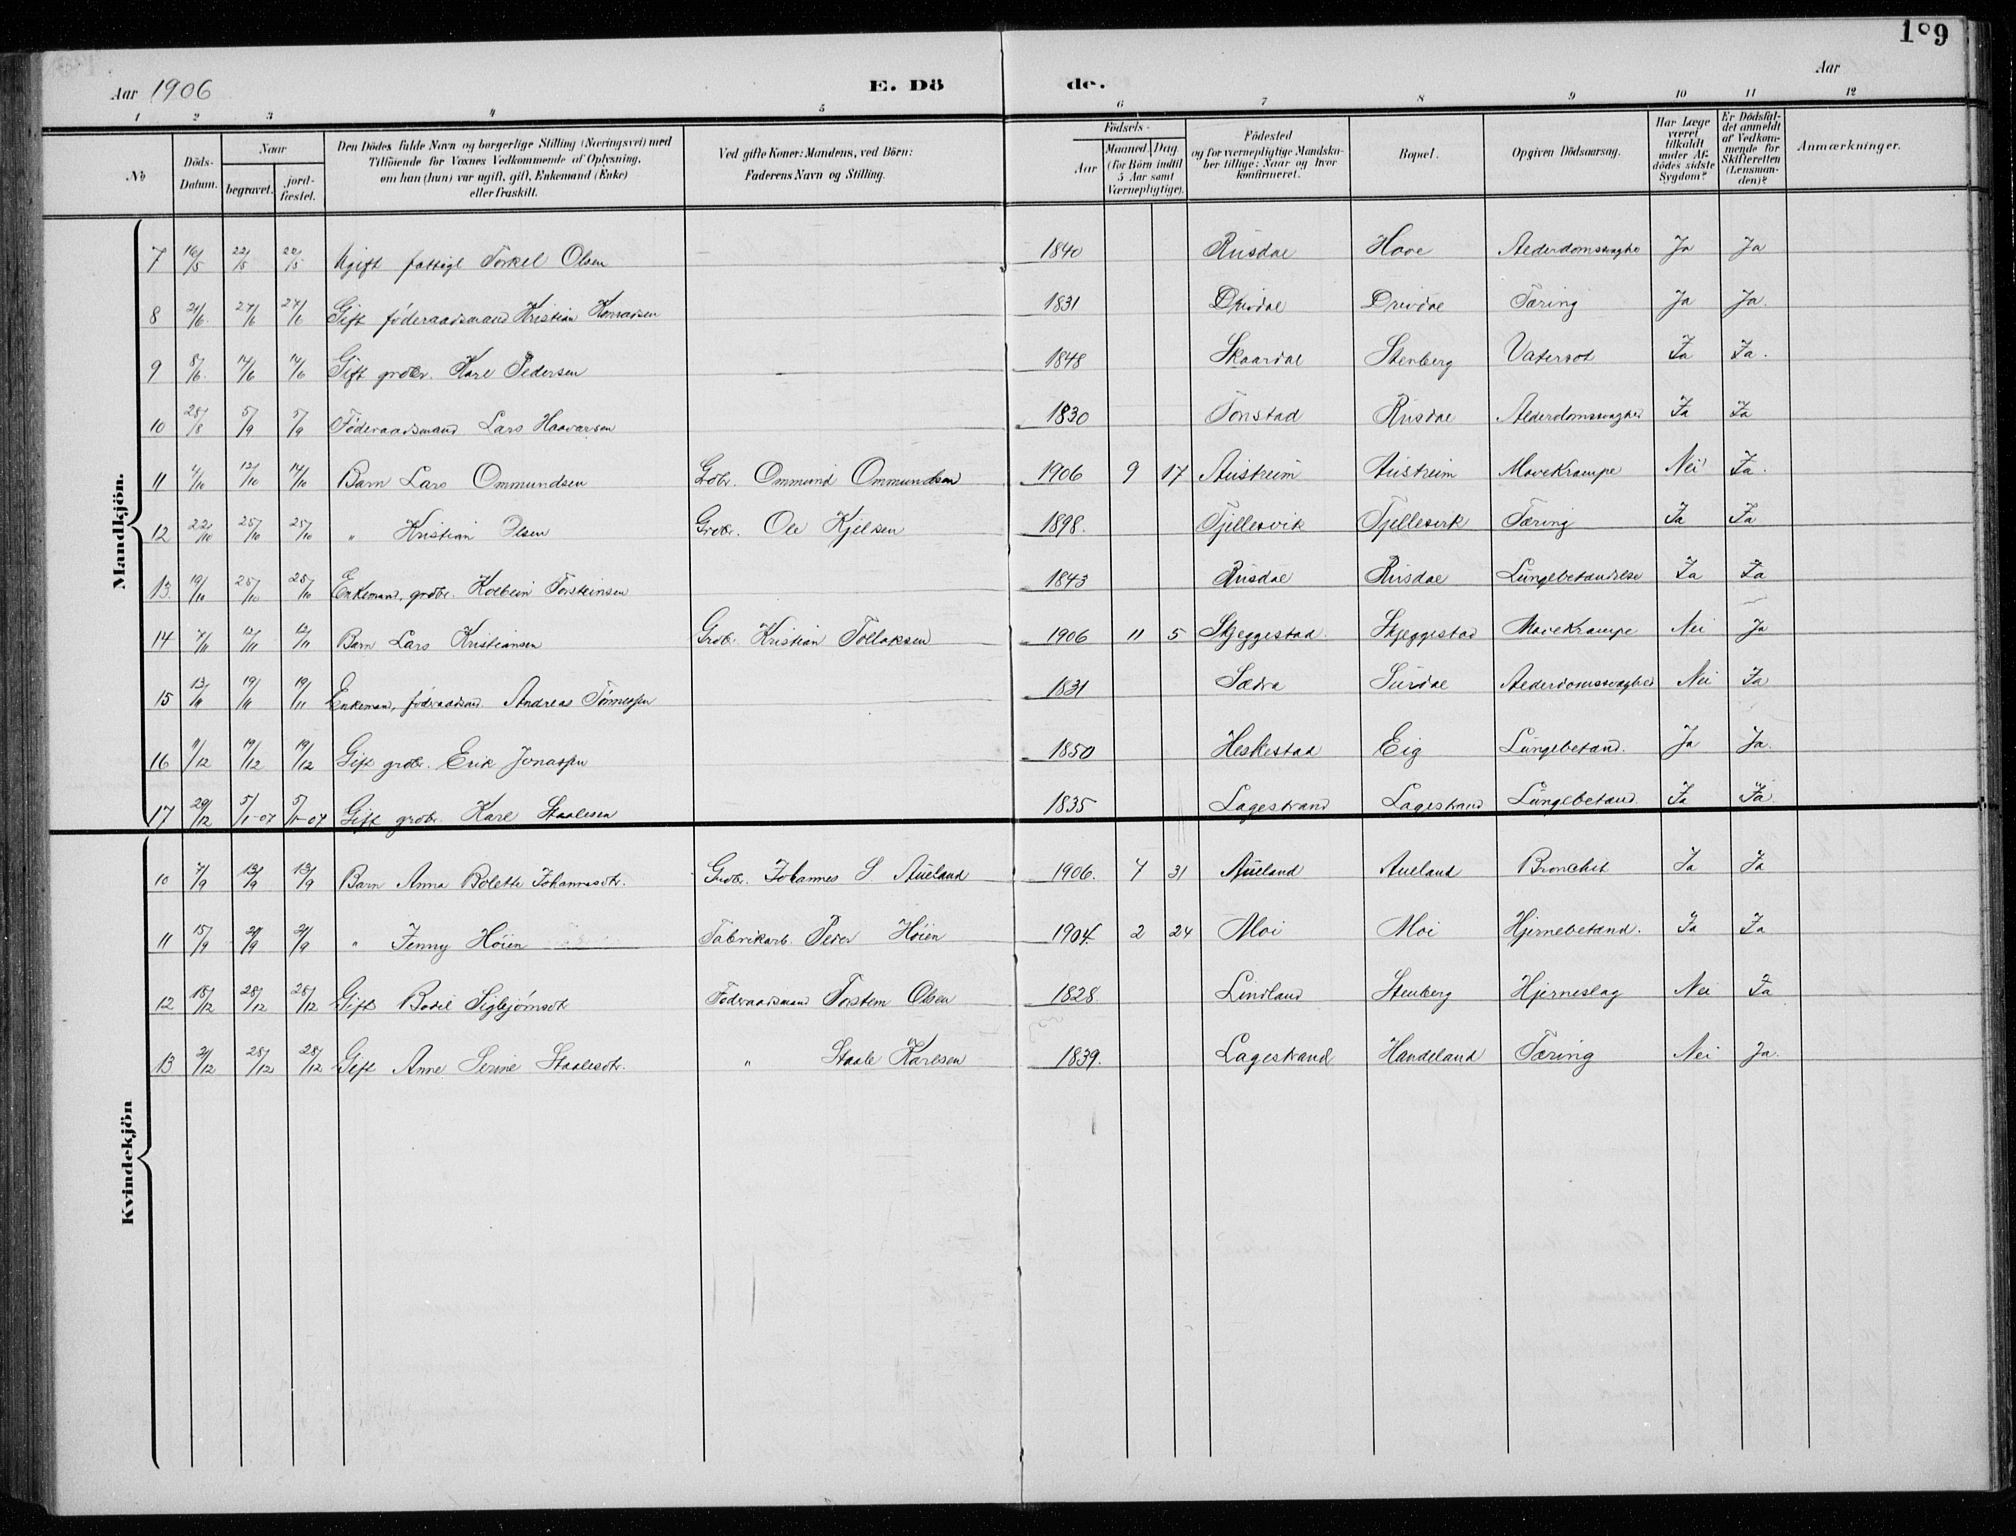 189
Aar 1906 E. Dö de. Aar
1 2 3 4 5 6 7 8 9 10 11 12
No
Döds-Datum.
Naar
begravet. jord-fæstet.
Den Dödes fulde Navn og borgerlige Stilling (Næringsvei) med
Tilföiende for Voxnes Vedkommende af Oplysning,
om han (hun) var ugift, gift, Enkemand (Enke)
eller fraskilt.
Ved gifte Koner: Mandens, ved Börn:
Faderens Navn og Stilling.
Födsels-
Aar Maaned Dag
(for Börn indtil 5 Aar samt Værnepligtige).
Födested
og for værnepligtige Mandska-
ber tillige: Naar og hvor
konfirmeret.
Bopæl.
Opgiven Dödsaarsag.
Har Læge
været
tilkaldt
under Af-
dödes sidste
Sygdom?
Er Dödsfal-
det anmeldt
af Vedkom-
mende for
Skifteretten
(Lensman-
den)?
Anmærkninger.
Mandkjön.
7 16/5 22/5 22/5 Ugift fattigl Torkel Olsen 1840 Rusdal Hove Alderdomssvaghe Ja Ja
8 21/6 27/6 27/6 Gift föderaadsmand Kristian Konradsen 1831 Drivdal Drivdal Tæring Ja Ja.
9 8/6 14/6 14/6 Gift grdbr. Karl Pedersen 1848 Skaardal Stenberg Vatersot Ja Ja.
10 28/8 5/9 5/9 Föderaadsmand Lars Haavarsen 1830 Tonstad Rusdal Alderdomssvaghed Ja Ja
11 4/10 12/10 14/10 Barn Lars Ommundsen Grdbr. Ommund Ommundsen 1906 9 17 Austreim Austreim Mavekrampe Nei Ja.
12 22/10 25/10 25/10 " Kristian Olsen Grdbr. Ole Kjelsen 1898. Fjellesvik Fjellesvik Tæring Ja Ja
13. 19/10 25/10 25/10 Enkemand, grdbr. Kolbein Torsteinsen 1843 Rusdal Rusdal Lungebetændelse Ja Ja
14 7/11 12/11 12/11 Barn Lars Kristiansen Grdbr. Kristian Tollaksen 1906 11 5 Skjeggestad Skjeggestad Mavekrampe Nei Ja
15 13/11 19/11 19/11 Enkeman, föderaadsmd Andreas Tönnessen 1831 Sædra Surdal Alderdomssvaghed Nei Ja
16 11/12 19/12 19/12 Gift grdbr. Erik Jonassen 1850 Heskestad Eig Lungebetænd. Ja Ja.
17 29/12 5/1-07 5/1-07 Gift grdbr. Karl Staalesen 1835 Lagestrand Lagestrand Lungebetænd. Ja Ja
Kvindekjön
10 7/9 13/9 13/9 Barn Anna Bolette Johannesdtr. Grdbr. Johannes S. Aueland 1906. 7 31 Aueland Aueland Bronchit Ja Ja
11 15/9 21/9 21/9 " Jenny Höien Fabrikarb. Peder Höien 1904. 2 24 Moi Moi Hjernebetænd. Ja Ja
12 15/12 28/12 28/12 Gift Bodil Sigbjörnsdtr Föderaadsmand Torstein Olsen 1828 Lindland Stenberg Hjerneslag Nei Ja
13 21/12 28/12 28/12 Gift Anne Serine Staalesdtr. " Staale Karlsen 1839. Lagestrand Handeland Tæring Nei Ja.